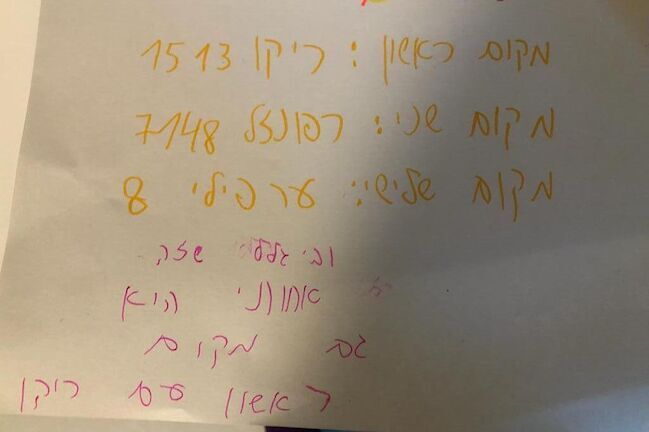 מקום ראשון: ריקו 1513
מקום שני: רפונזל 7148
מקום שלישי: ערפילי 8
ובי גללי שזה
אחותי היא
גם מקום
ראשון עם ריקו